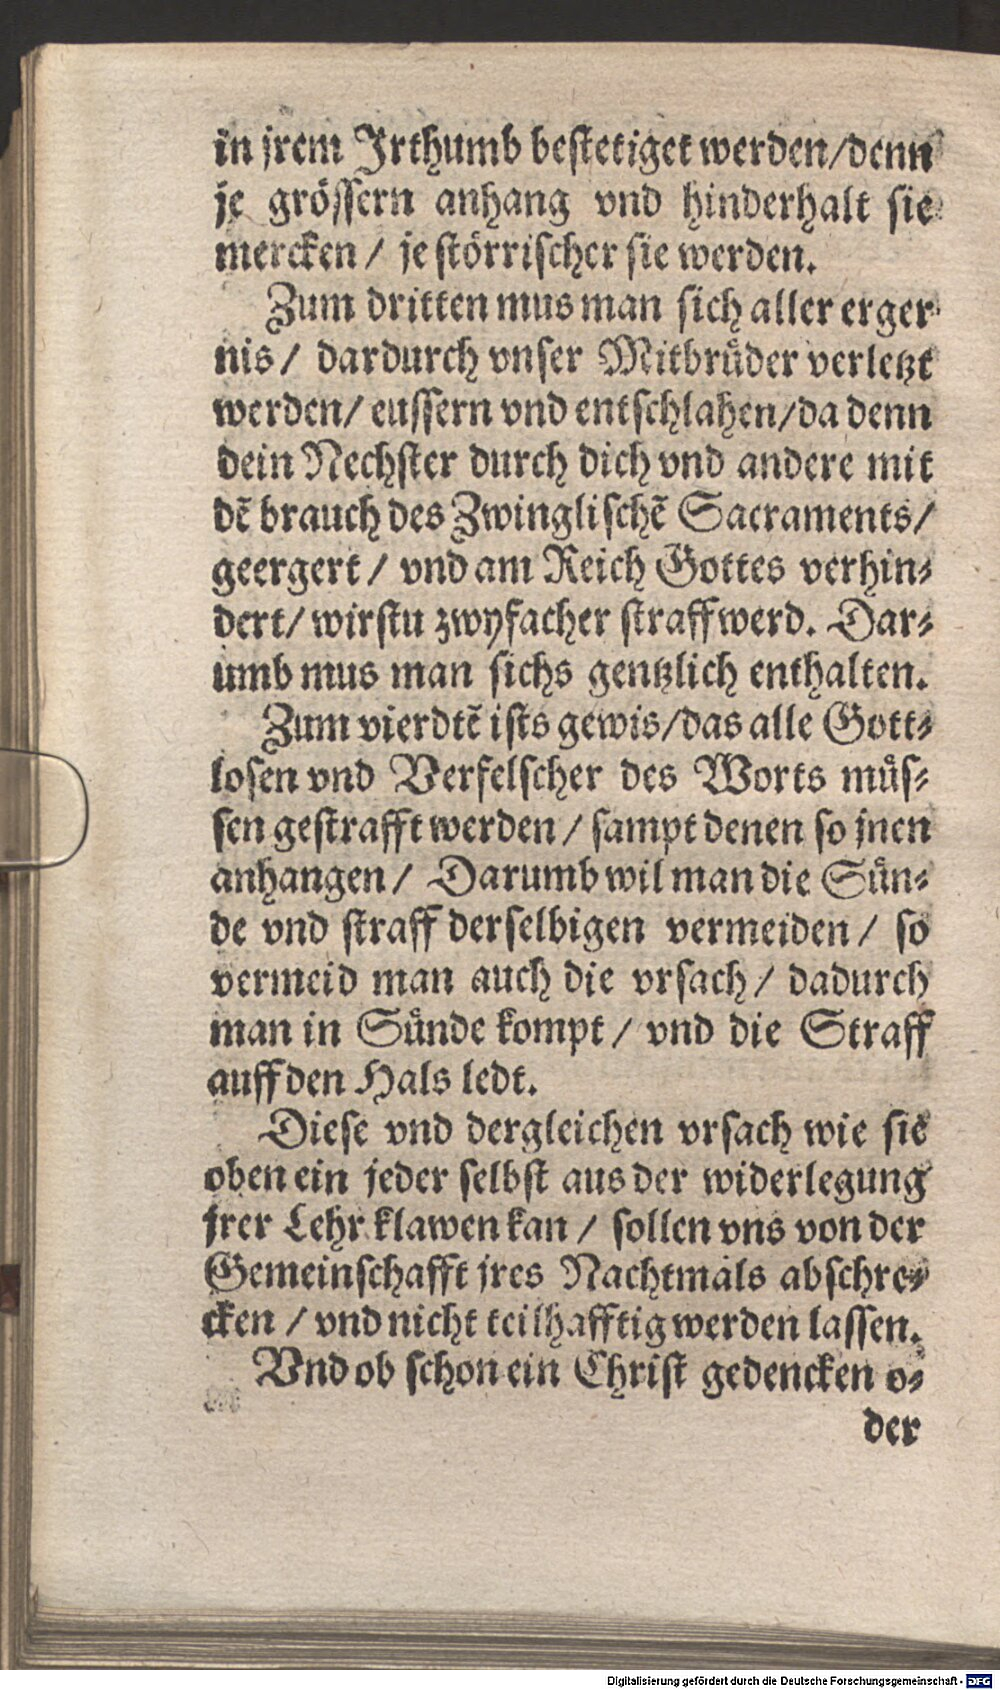 in jrem Jrthumb bestetiget werden/denn
je grössern anhang vnd hinderhalt sie
mercken / je störrischer sie werden.
Zum dritten mus man sich aller erger
nis / dardurch vnser Mitbrüder verletzt
werden/ eussern vnd entschlahen/da denn
dein Nechster durch dich vnd andere mit
dē brauch des Zwinglischē Sacraments/
geergert / vnd am Reich Gottes verhin⸗
dert/ wirstu zwyfacher straff werd. Dar⸗
umb mus man sichs gentzlich enthalten.
Zum vierdtē ists gewis/das alle Gott⸗
losen vnd Verfelscher des Worts müs⸗
sen gestrafft werden / sampt denen so jnen
anhangen / Darumb wil man die Sün⸗
de vnd straff derselbigen vermeiden / so
vermeid man auch die vrsach / dadurch
man in Sünde kompt / vnd die Straff
auff den Hals ledt.
Diese vnd dergleichen vrsach wie sie
oben ein jeder selbst aus der widerlegung
jrer Lehr klawen kan / sollen vns von der
Gemeinschafft jres Nachtmals abschre⸗
cken / vnd nicht teilhafftig werden lassen.
Vnd ob schon ein Christ gedencken o⸗
der
Digitalisierung gefördert durch die Deutsche Forschungsgemeinschaft - DFG